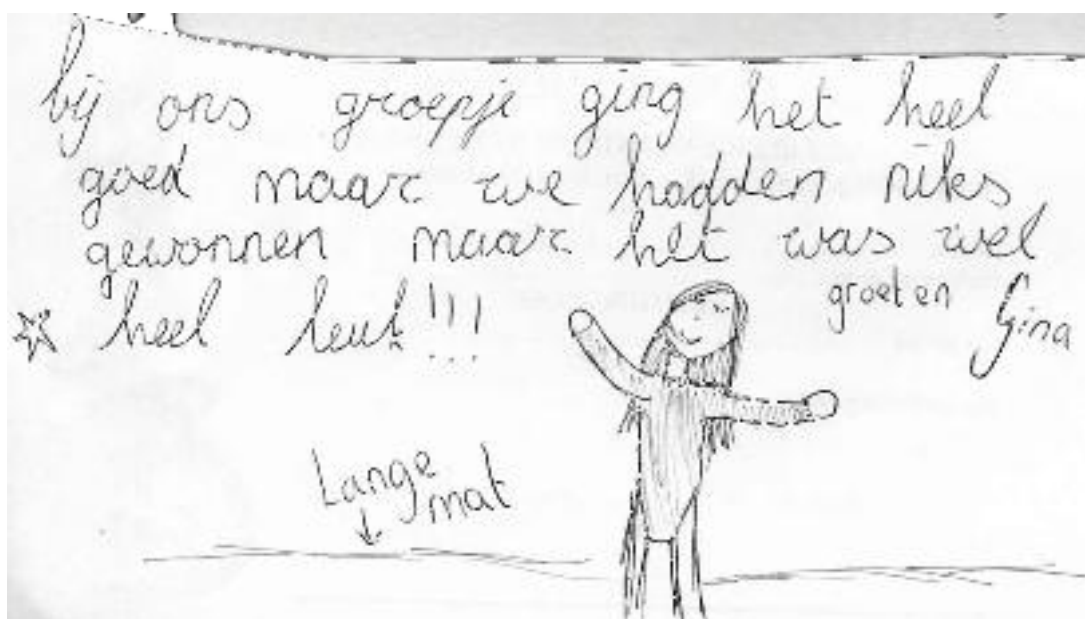 bij ons groepje ging het heel
goed maar we hadden niks
gewonnen maar het was wel
heel leuk!!!
groeten Gina
Lange
mat